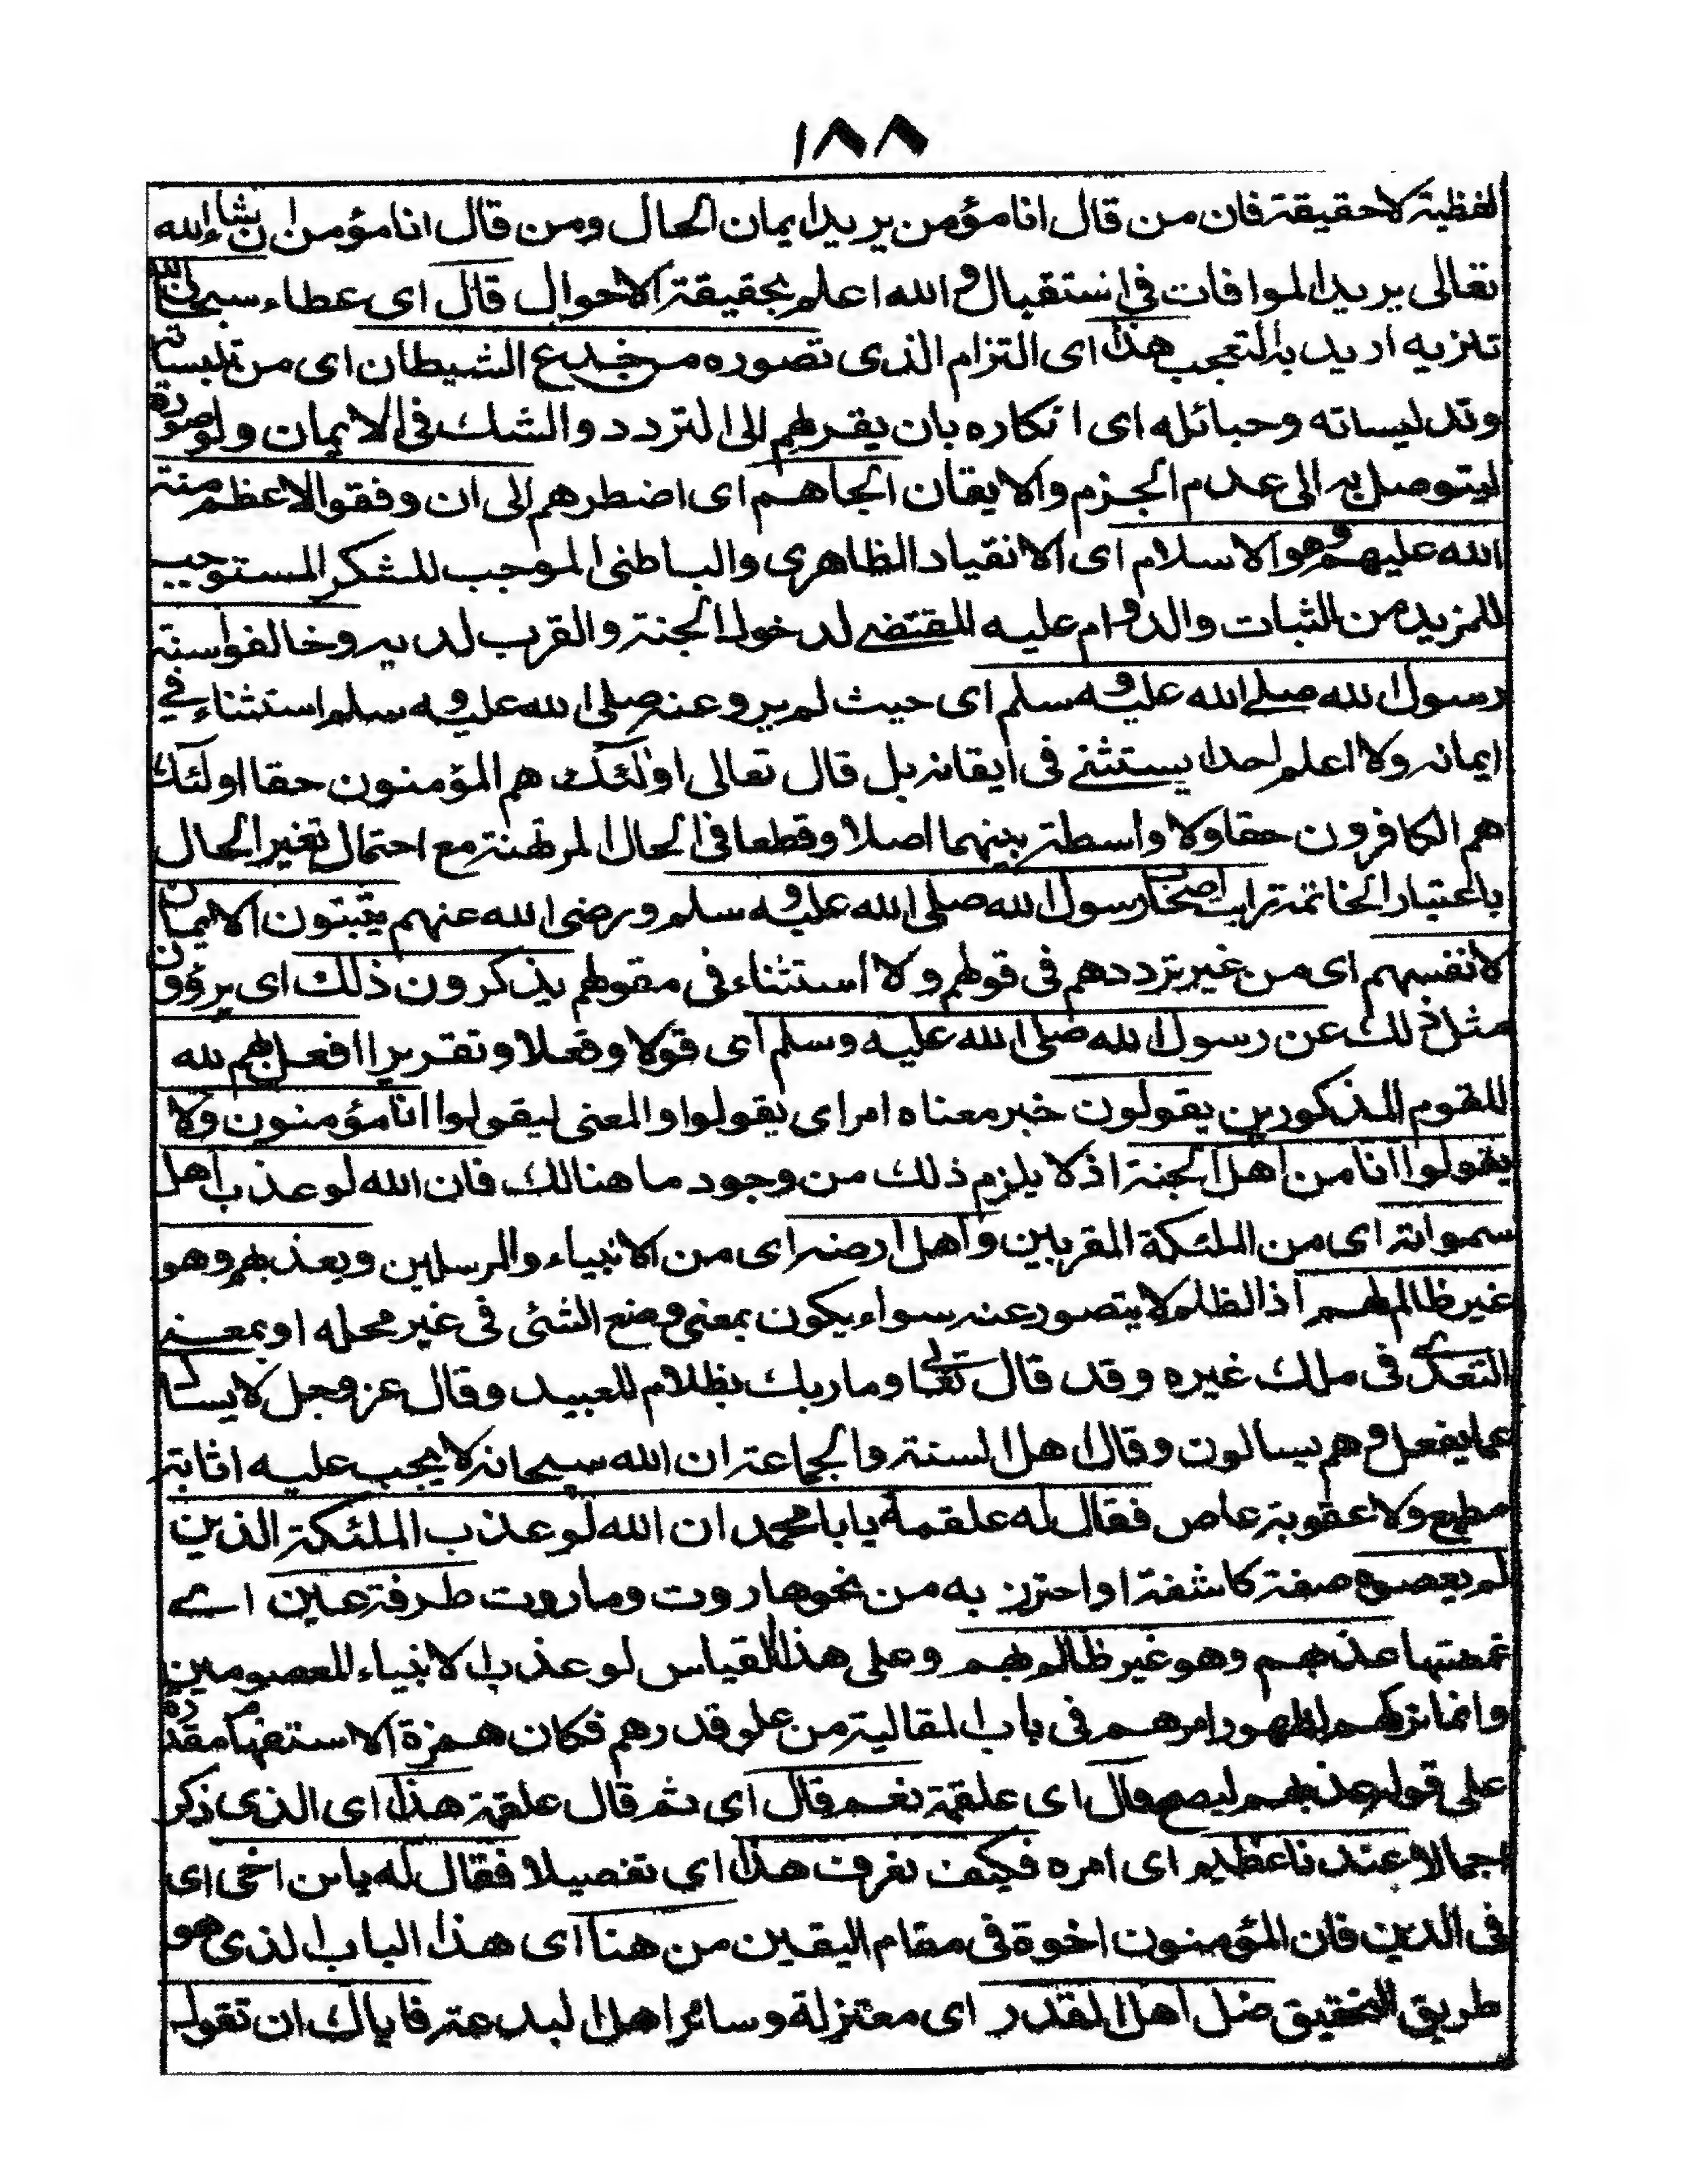 ١٨٨
لفظية لا حقيقة فان من قال انا مؤمن يريد ايمان الحال ومن قال انا مؤمن ان شاء الله
تعالى يريد الموافات في استقبال والله اعلم بحقيقة الاحوال قال اى عطاء سبحان الله
تنزيه اريد به التعجب هذا اى التزام الذى تصوره من خدع الشيطان اى من تلبيساته
وتدليساته وحبائله اى انكاره بان يقرهم الى التردد والشك فى الايمان ولو صورة
ليتوصل به الى عدم الجزم والايقان الجاهم اى اضطرهم الى ان وفقوا لاعظم منة
الله عليهم وهو الاسلام اى الانقياد الظاهرى والباطنى الموجب للشكر المستوجب
للمزيد من الثبات والدوام عليه المقتضے لدخول الجنة والقرب لديه وخالفوا سنة
رسول الله صلے الله عليه وسلم اى حيث لم يرو عنه صلى الله عليه وسلم استثناء في
ايمانه ولا اعلم احدا يستثنے فى ايقانه بل قال تعالى اولئك هم المؤمنون حقا اولئك
هم الكافرون حقا ولا واسطة بينهما اصلا وقطعا فى الحال المرتهنة مع احتمال تغير الحال
باعتبار الخاتمة رايت اصحاب رسول الله صلى الله عليه وسلم ورضى الله عنهم يثبتون الايمان
لانفسهم اى من غير ترددهم فى قولهم ولا استثناء فى مقولهم يذكرون ذلك اى يرؤون
مثل ذلك عن رسول الله صلى الله عليه وسلم اى قولا وفعلا وتقريرا افعل لهم لله
للقوم المذكورين يقولون خبر معناه امر اى يقولوا والمعنى ليقولوا انا مؤمنون ولا
يقولوا انا من اهل الجنة اذ لا يلزم ذلك من وجود ما هنالك فان الله لو عذب اهل
سمواته اى من الملئكة المقربين واهل ارضه اى من الانبياء والمرسلين ويعذبهم وهو
غير ظالم لهم اذ الظلم لا يتصور عنه سواء يكون بمعنى وضع الشئى فى غير محله او بمعنے
التعدى فى ملك غيره وقد قال تعالى وما ربك بظلام للعبيد وقال عز وجل لا يسال
عما يفعل وهم يسالون وقال اهل السنة والجماعة ان الله سبحانه لا يجب عليه اثابة
مطيع ولا عقوبة عاص فقال له علقمة يا با محمد ان الله لو عذب الملئكة الذين
لم يعصوه صفة كاشفة او احترز به من نحو هاروت وماروت طرفة عين اے
غمضتها عذبهم وهو غير ظالم لهم وعلى هذا القياس لو عذب الانبياء المعصومين
وانما تركهم لظهور امرهم فى باب المقالية من علو قدرهم فكان همزة الاستفهام مقدرة
على قوله عذبهم ليصح قال اى علقمة نعم قال اى ثم قال علقمة هذا اى الذى ذكر
اجمالا عندنا عظيم اى امره فكيف نعرف هذا اى تفصيلا فقال له يا بن اخى اى
فى الدين فان المؤمنون اخوة فى مقام اليقين من هنا اى هذا الباب الذى هو
طريق التحقيق ضل اهل القدر اى معتزلة وسائر اهل البدعة فاياك ان تقول